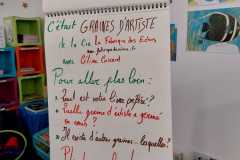 C'était GRAINES D'ARTISTE
de la Cie la Fabrique des Echos
avec
Pour aller plus loin :
• Quel est votre livre préféré ?
• Quelle graine d'artiste a germé
en vous ?
• Il existe d'autres graines... lesquelles ?